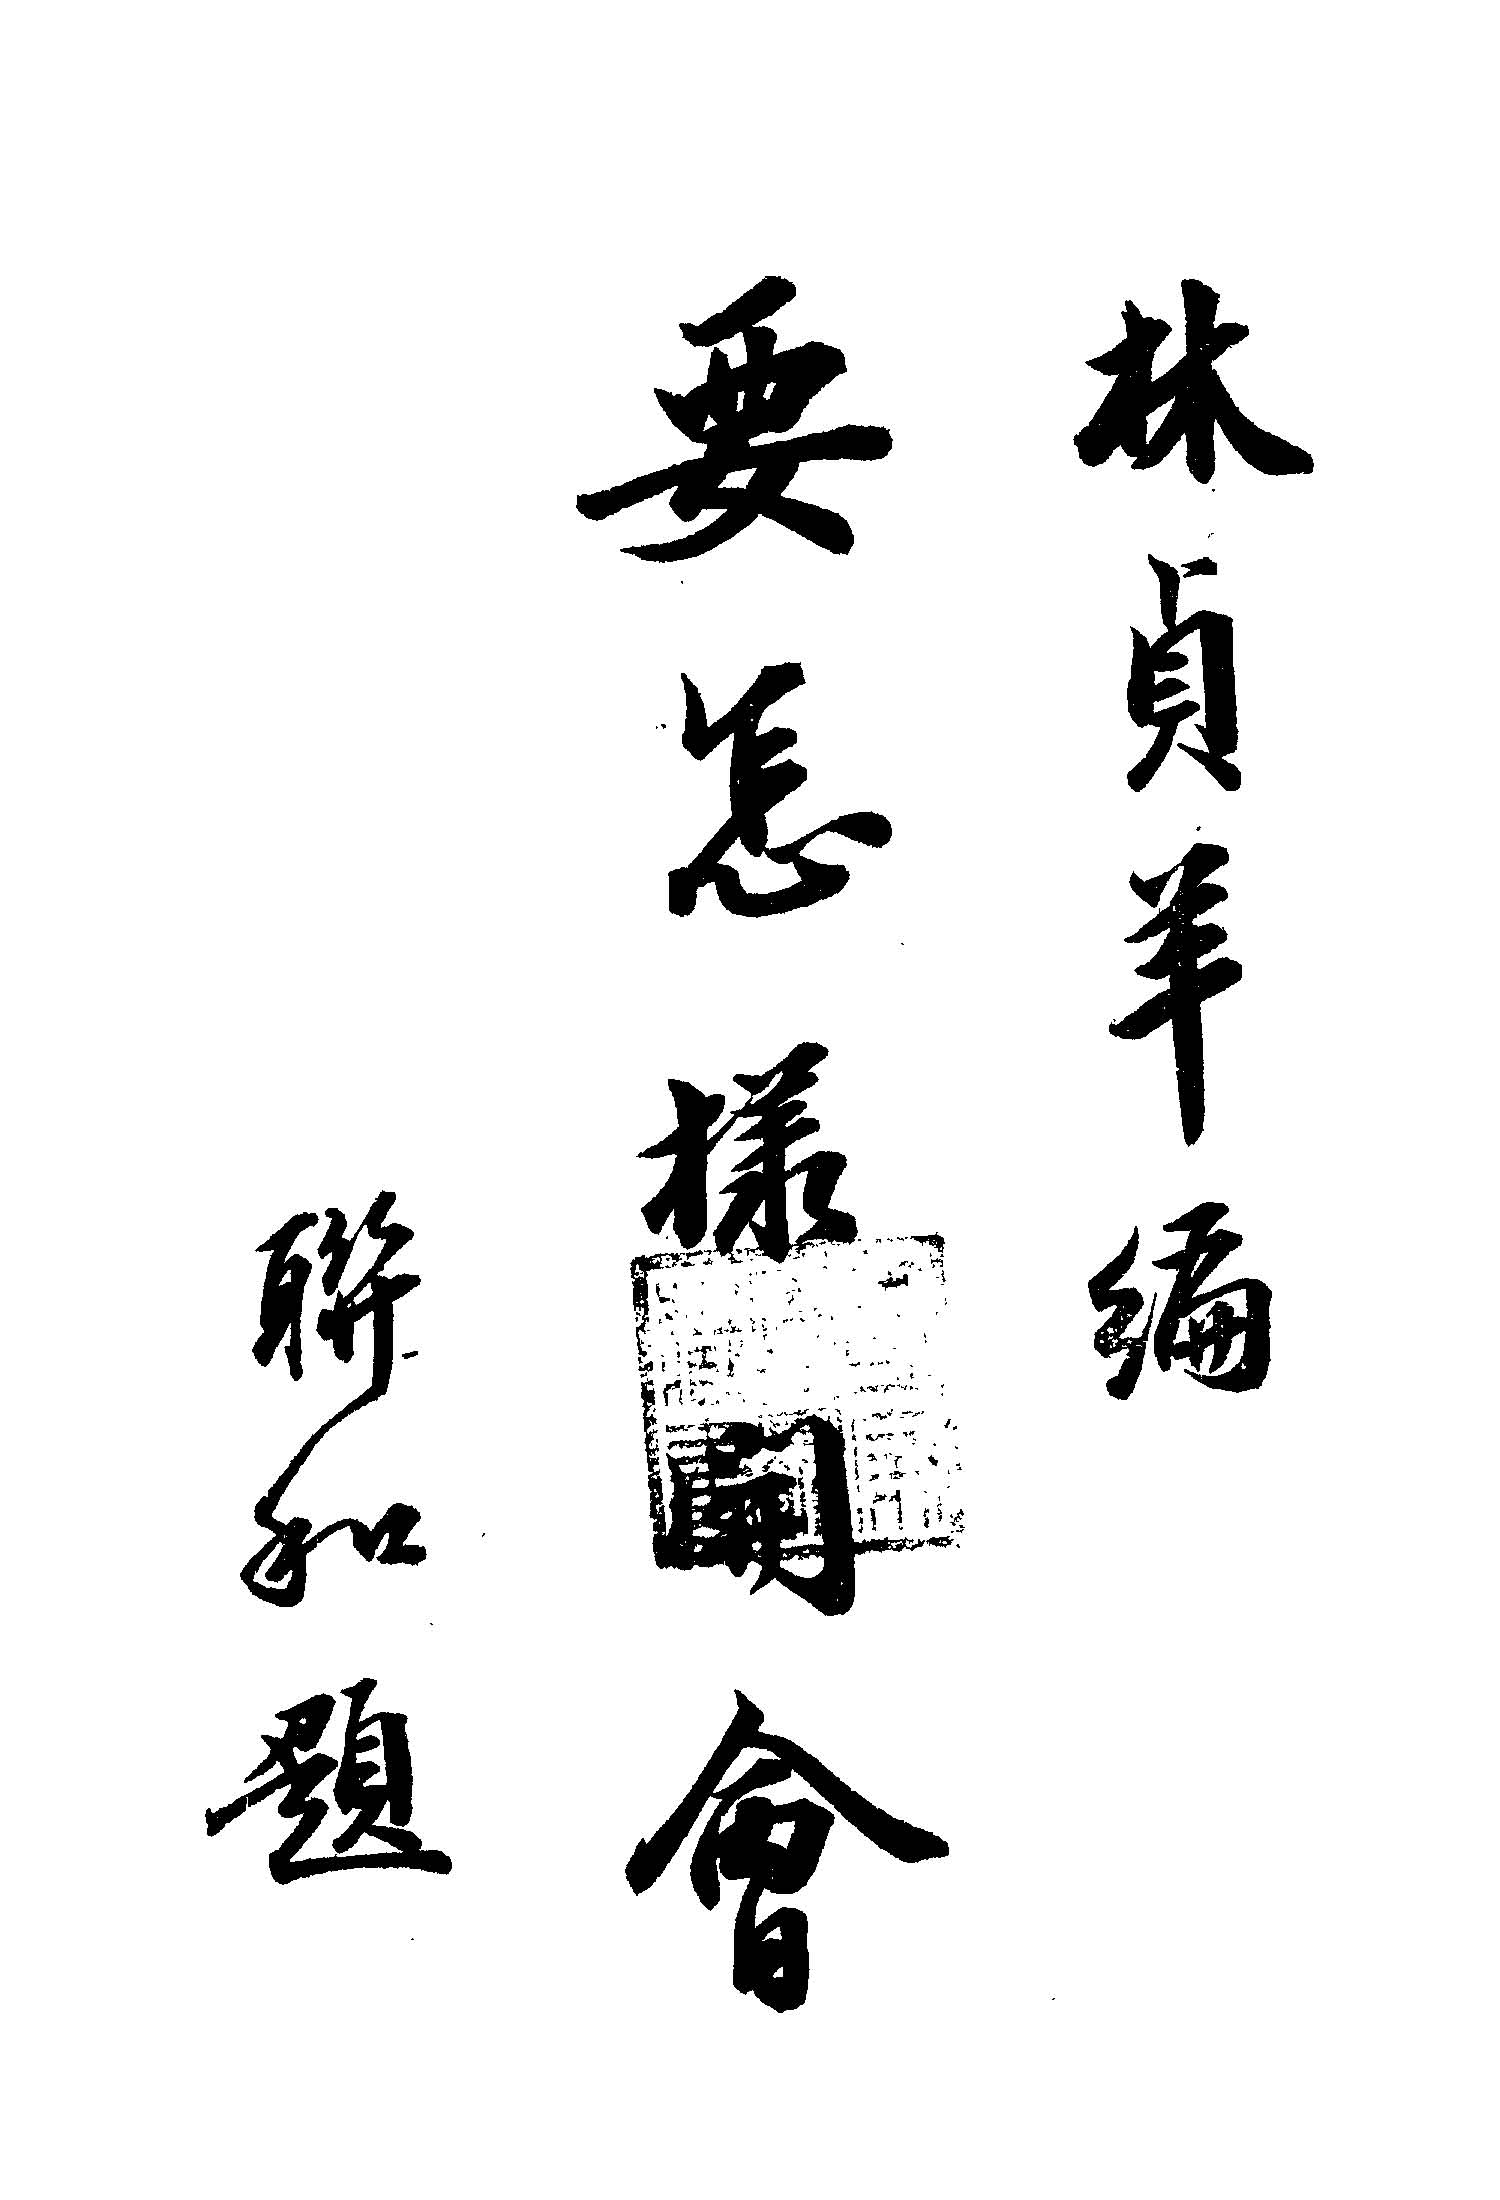 林貞羊編
要怎樣開會
聯和題